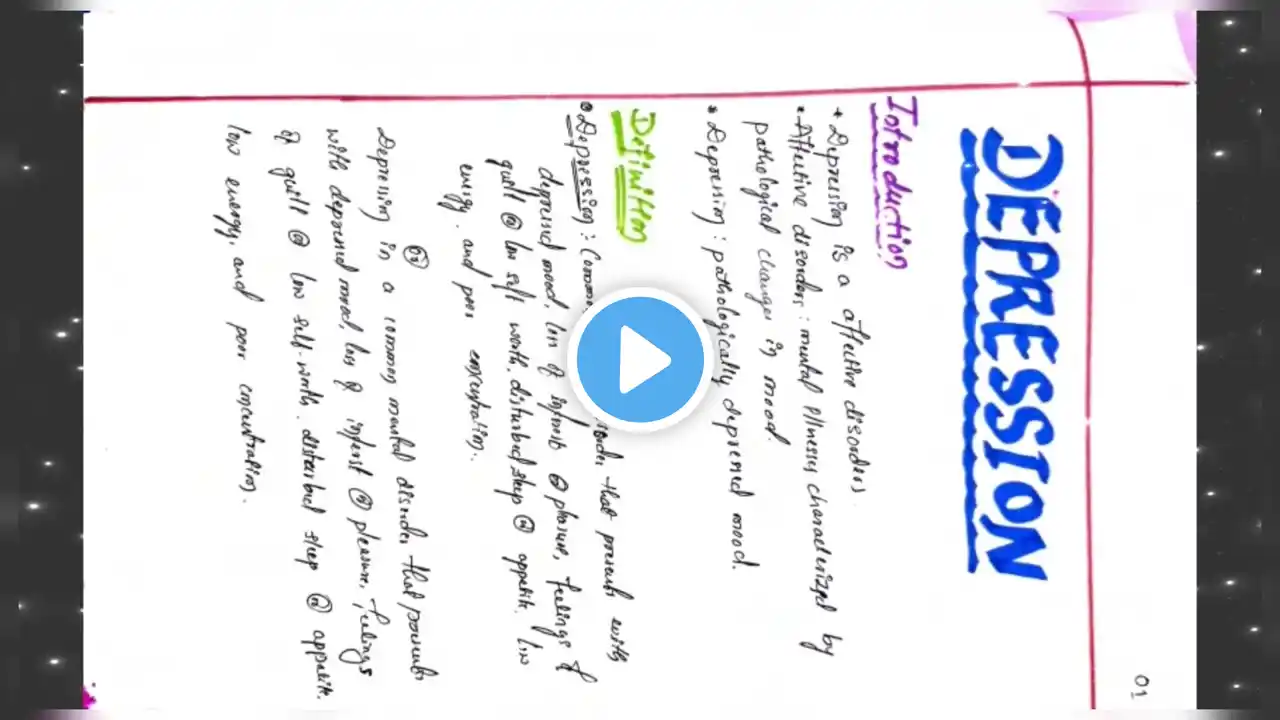 01
DEPRESSION
Introduction
* Depression is a affective disorders.
* Affective disorders : mental illnesses characterized by
pathological changes in mood.
* Depression : pathologically depressed mood.
Definition
Depression : Common that presents with
depressed mood, loss of interest or pleasure, feelings of
guilt or low self worth, disturbed sleep or appetite, low
energy, and poor concentration.
or
Depression is a common mental disorder that presents
with depressed mood, loss of interest or pleasure, feelings
of guilt or low self-worth, disturbed sleep or appetite,
low energy, and poor concentration.